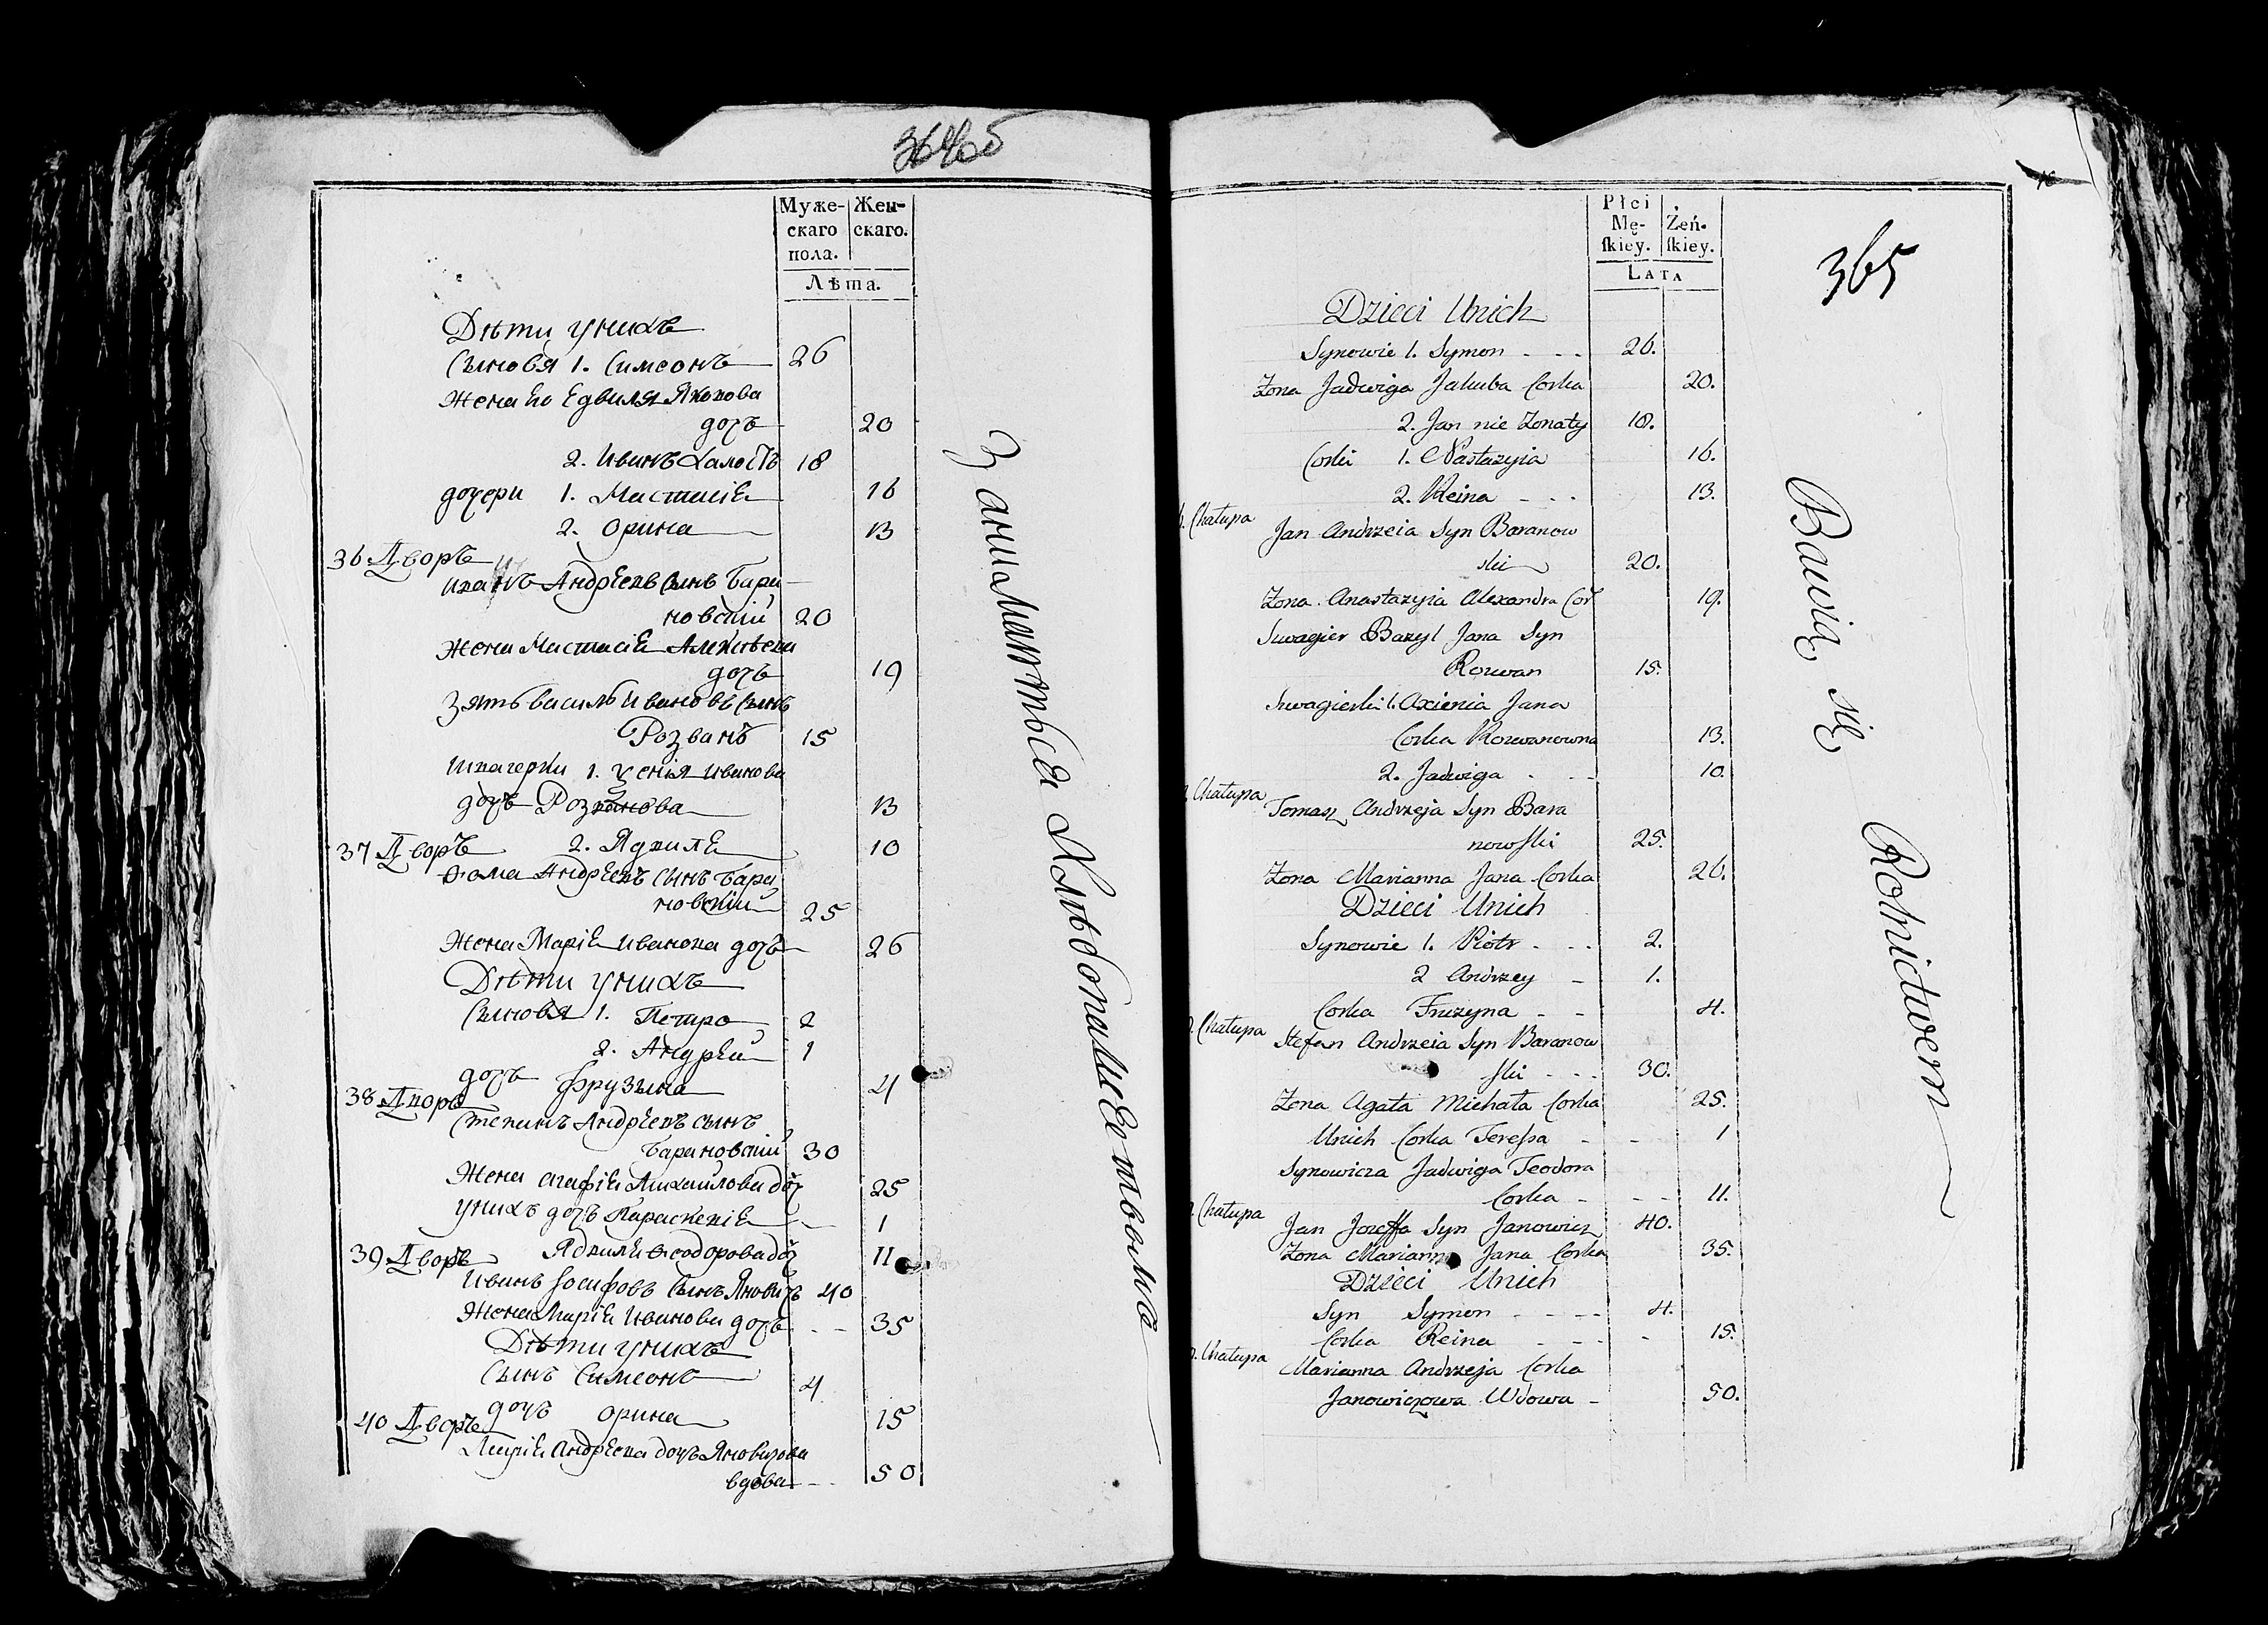 364об
Муже-
скаго
пола.
Жен-
скаго.
Лѣта.
Дѣти унихъ
Сыновя 1. Симеонъ 26
Жена ево Едвига Яковова
дочъ 20
2. Иванъ холостъ 18
дочери 1. Настасія 16
2. Орина 13
36 Дворъ
Иванъ Андреевъ сынъ Бара
новскій 20
Жена Настасія Алексѣева
дочъ 19
Зять василь Ивановъ сынъ
Розванъ 15
Швагерки 1. Ксенія Иванова
дочъ Розванова 13
2. Ядвига 10
37 Дворъ
Ѳома Андреевъ сынъ Бара
новскій 25
Жена Марія Иванова дочъ 26
Дѣти унихъ
Сыновя 1. Петро 2
2. Андрей 1
дочъ Фрузына 4
38 Дворъ
Степанъ Андреевъ сынъ
Барановскій 30
Жена агафія Михайлова доч 25
унихъ дочъ Параскевія 1
Ядвига Ѳеодорова доч 11
39 Дворъ
Иванъ Іосифовъ сынъ Яновичъ 40
Жена Марія Иванова дочъ 35
Дѣти унихъ
Сынъ Симеонъ 4
дочъ Орина 15
40 Дворъ
Марія Андреева дочъ Яновичова
вдова 50
Занимаются Хлѣбопашеством
Płci
Mę-
ſkiey.
Żeń-
ſkiey.
LATA
365
Dzieci Unich
Synowie 1. Symon - - - 26.
Zona Jadwiga Jakuba Corka 20.
2. Jan nie Zonaty 18.
Corki 1. Nastazyia 16.
2. Reina - - - 13.
Chałupa
Jan Andrzeia Syn Baranow
ski 20.
Zona Anastazyia Alexandra Cor 19.
Swagier Bazyl Jana Syn
Rozwan 15.
Swagierki 1. Axienia Jana
Corka Rozwanowna 13.
2. Jadwiga - - - 10.
Chałupa
Tomasz Andrzeja Syn Bara
nowſki 25.
Zona Marianna Jana Corka 26.
Dzieci Unich
Synowie 1. Piotr - - - 2.
2 Andrzey - 1.
Corka Fruzyna - - 4.
Chałupa
Stefan Andrzeia Syn Baranow
ſki - - - 30.
Zona Agata Michała Corka 25.
Unich Corka Tereſsa - - 1
Synowicza Jadwiga Teodora
Corka - - - 11.
Chałupa
Jan Jozeffa Syn Janowicz 40.
Zona Marianna Jana Corka 35.
Dzieci Unich
Syn Symon - - - - 4.
Corka Reina - - - - 15.
Chałupa
Marianna Andrzeja Corka
Janowiczowa Wdowa - 50.
Bawią się Rolnictwem